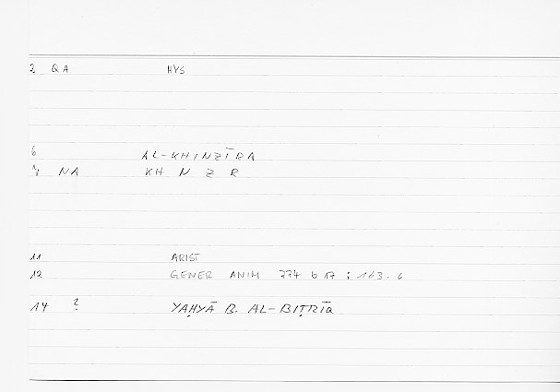 2 QA HYS
6 AL-KHINZĪRA
7 NA KH N Z R
11 ARIST
12 GENER ANIM 774 b 17 : 163.6
14 ? YAḤYĀ B. AL-BIṬRĪQ